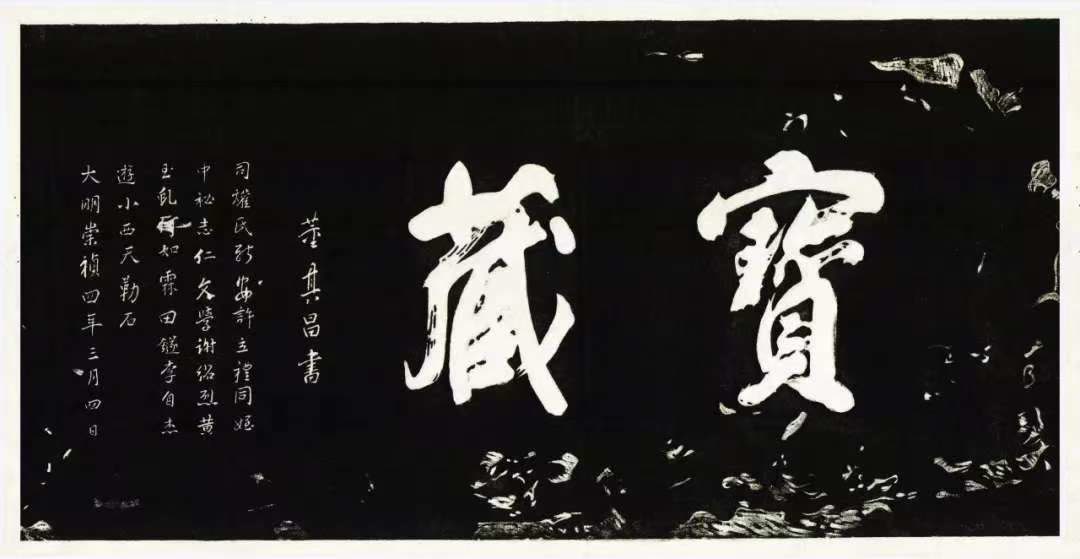 寶藏
董其昌書
司 氏新安許立禮同姪
中祕志仁文學謝紹烈黃
玉 如霖田 李自杰
遊小西天勒石
大明崇禎四年三月四日